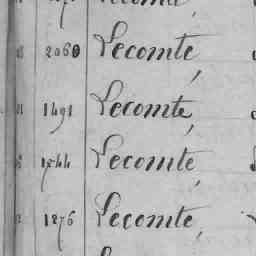 2060 Lecomte,
1491 Lecomte,
1544 Lecomte,
1876 Lecomte,